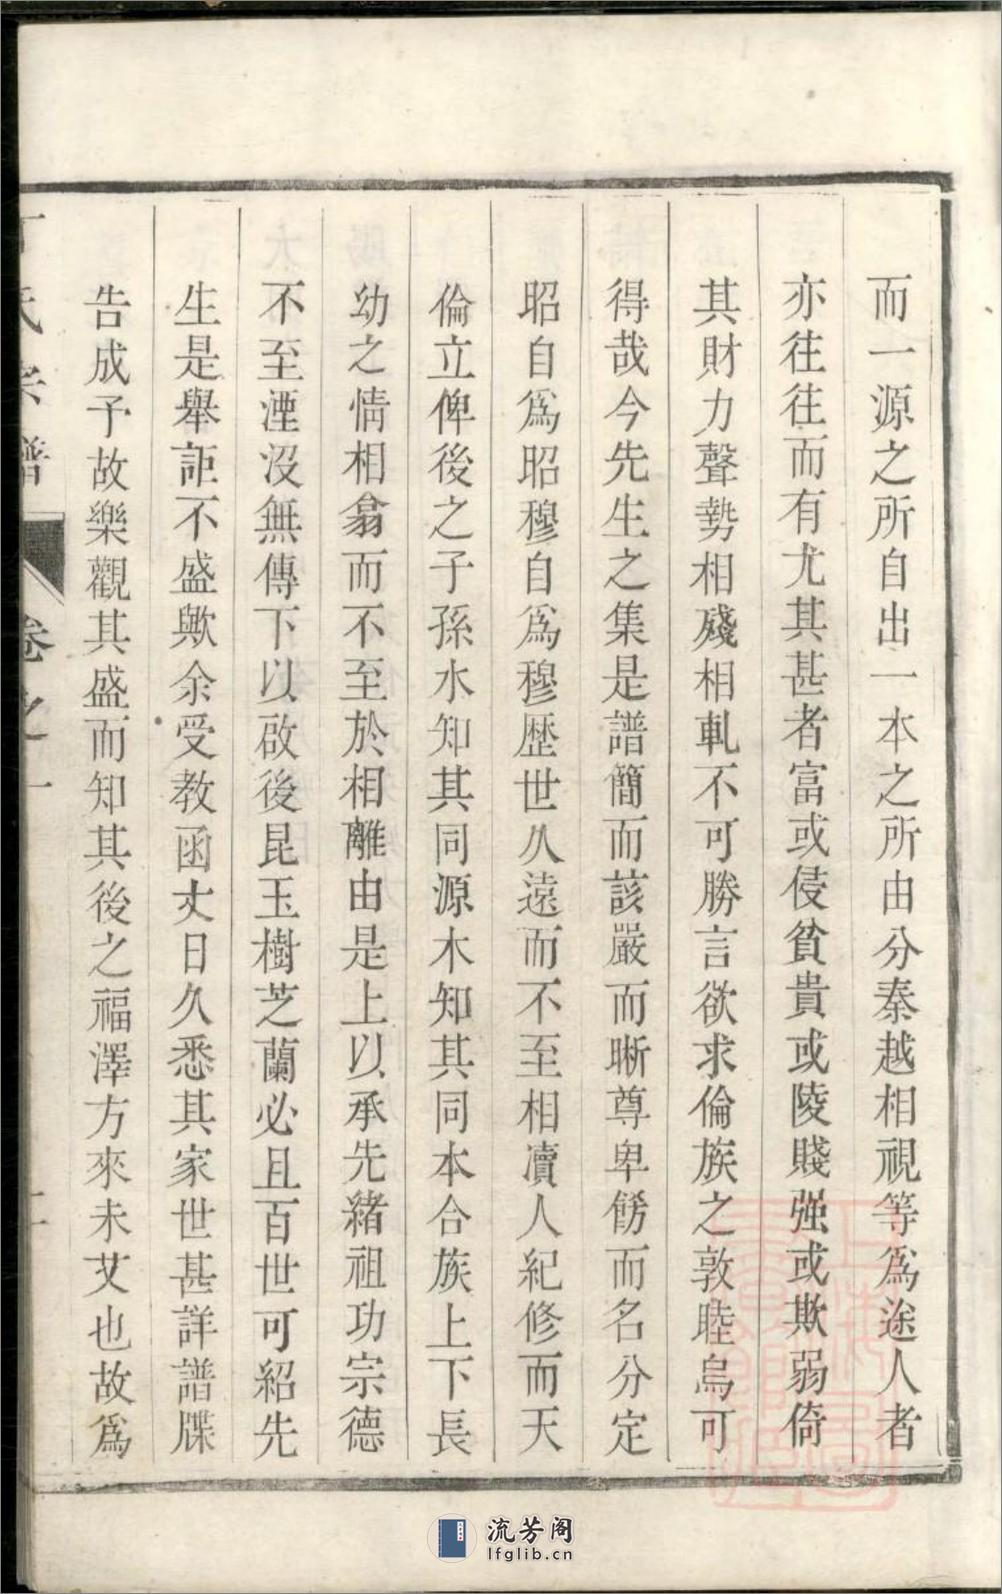 而一源之所自出一本之所由分秦越相視等爲途人者
亦往往而有尤其甚者富或侵貧貴或陵賤强或欺弱倚
其財力聲勢相殘相軋不可勝言欲求倫族之敦睦烏可
得哉今先生之集是譜簡而該嚴而晰尊卑餝而名分定
昭自爲昭穆自爲穆歷世久遠而不至相凟人紀修而天
倫立俾後之子孫水知其同源木知其同本合族上下長
幼之情相翕而不至於相離由是上以承先緒祖功宗德
不至湮沒無傳下以啟後昆玉樹芝蘭必且百世可紹先
生是舉詎不盛歟余受教函丈日久悉其家世甚詳譜牒
告成予故樂觀其盛而知其後之福澤方來未艾也故爲
氏宗譜
卷之一
流芳阁
lfglib.cn